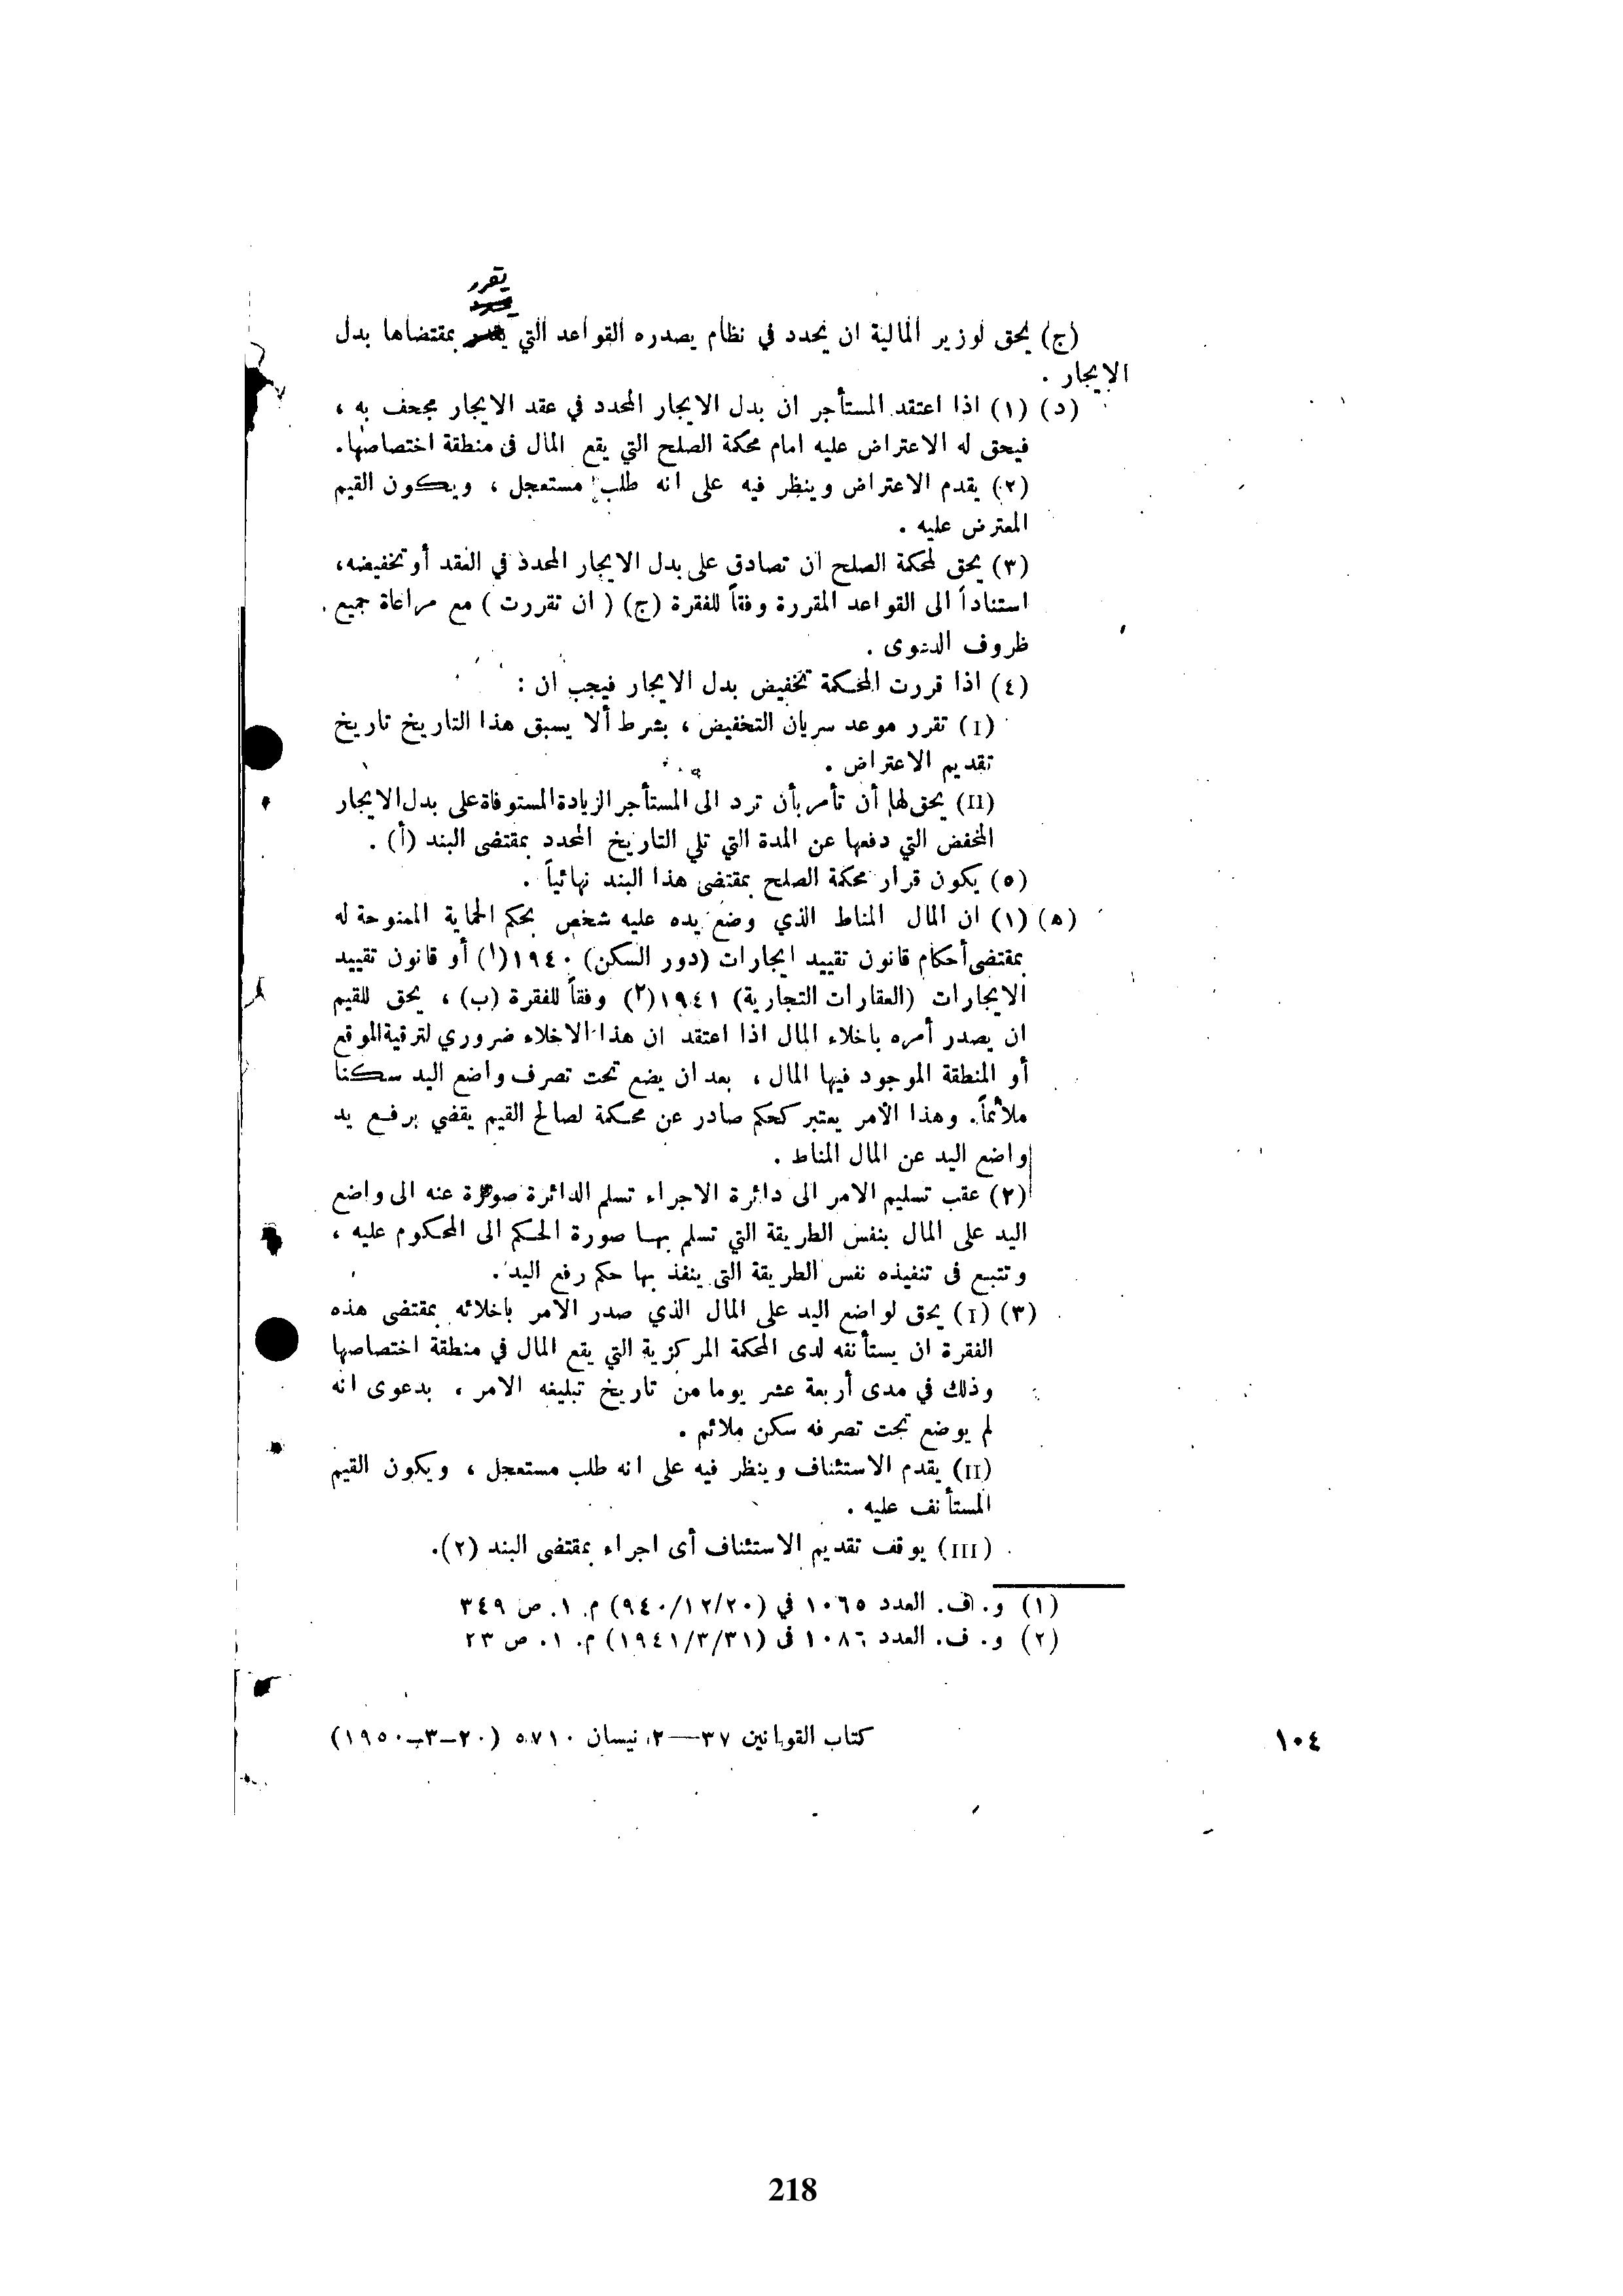 يقرر
(ج) يحق لوزير المالية ان يحدد في نظام يصدره القواعد التي بمقتضاها بدل
الايجار .
(د) (١) اذا اعتقد المستأجر ان بدل الايجار المحدد في عقد الايجار مجحف به ،
فيحق له الاعتراض عليه امام محكمة الصلح التي يقع المال فى منطقة اختصاصها.
(٢) يقدم الاعتراض وينظر فيه على انه طلب مستعجل ، ويكون القيم
المعترض عليه .
(٣) يحق لمحكمة الصلح ان تصادق على بدل الايجار المحدد في العقد أو تخفيضه،
استناداً الى القواعد المقررة وفقاً للفقرة (ج) ( ان تقررت ) مع مراعاة جميع
ظروف الدعوى .
(٤) اذا قررت المحكمة تخفيض بدل الايجار فيجب ان :
(I) تقرر موعد سريان التخفيض ، بشرط ألا يسبق هذا التاريخ تاريخ
تقديم الاعتراض .
(II) يحق لها أن تأمر بأن ترد الى المستأجر الزيادة المستوفاة على بدل الايجار
المخفض التي دفعها عن المدة التي تلي التاريخ المحدد بمقتضى البند (أ) .
(٥) يكون قرار محكمة الصلح بمقتضى هذا البند نهائياً .
(ه) (١) ان المال المناط الذي وضع يده عليه شخص بحكم الحماية الممنوحة له
بمقتضى أحكام قانون تقييد ايجارات (دور السكن) ١٩٤٠(١) أو قانون تقييد
الايجارات (العقارات التجارية) ١٩٤١(٢) وفقاً للفقرة (ب) ، يحق للقيم
ان يصدر أمره باخلاء المال اذا اعتقد ان هذا الاخلاء ضروري لترقية الموقع
أو المنطقة الموجود فيها المال ، بعد ان يضع تحت تصرف واضع اليد سكنا
ملائماً. وهذا الأمر يعتبر كحكم صادر عن محكمة لصالح القيم يقضي برفع يد
واضع اليد عن المال المناط .
(٢) عقب تسليم الامر الى دائرة الاجراء تسلم الدائرة صورة عنه الى واضع
اليد على المال بنفس الطريقة التي تسلم بها صورة الحكم الى المحكوم عليه ،
وتتبع فى تنفيذه نفس الطريقة التى ينفذ بها حكم رفع اليد .
(٣) (I) يحق لواضع اليد على المال الذي صدر الامر باخلائه بمقتضى هذه
الفقرة ان يستأنفه لدى المحكمة المركزية التي يقع المال في منطقة اختصاصها
وذلك في مدى أربعة عشر يوما من تاريخ تبليغه الامر ، بدعوى انه
لم يوضع تحت تصرفه سكن ملائم .
(II) يقدم الاستئناف وينظر فيه على انه طلب مستعجل ، ويكون القيم
المستأنف عليه .
(III) يوقف تقديم الاستئناف أى اجراء بمقتضى البند (٢).
(١) و. ف. العدد ١٠٦٥ في (٩٤٠/١٢/٢٠) م. ١. ص ٣٤٩
(٢) و. ف. العدد ١٠٨٦ فى (١٩٤١/٣/٣١) م. ١. ص ٢٣
١٠٤ كتاب القوانين ٣٧—٢، نيسان ٥٧١٠ (٢٠-٣-١٩٥٠)
218